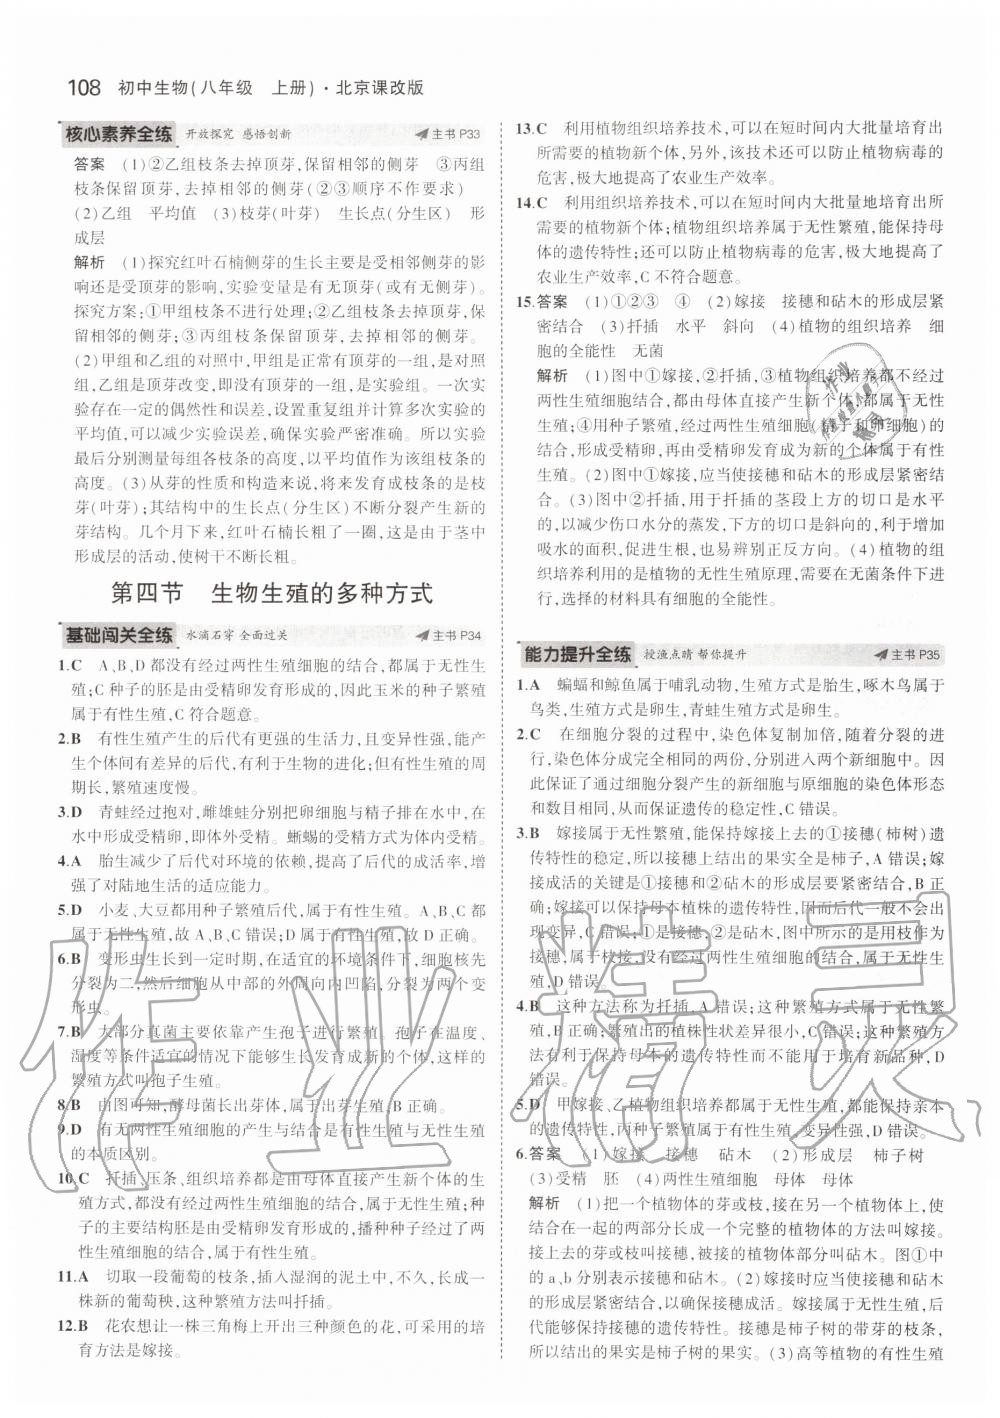 108 初中生物(八年级　上册)·北京课改版
核心素养全练 开放探究 感悟创新 主书 P33
答案　(1)②乙组枝条去掉顶芽,保留相邻的侧芽　③丙组
枝条保留顶芽,去掉相邻的侧芽(②③顺序不作要求)
(2)乙组　平均值　(3)枝芽(叶芽)　生长点(分生区)　形
成层
解析　(1)探究红叶石楠侧芽的生长主要是受相邻侧芽的影
响还是受顶芽的影响,实验变量是有无顶芽(或有无侧芽)。
探究方案:①甲组枝条不进行处理;②乙组枝条去掉顶芽,保
留相邻的侧芽;③丙组枝条保留顶芽,去掉相邻的侧芽。
(2)甲组和乙组的对照中,甲组是正常有顶芽的一组,是对照
组,乙组是顶芽改变,即没有顶芽的一组,是实验组。一次实
验存在一定的偶然性和误差,设置重复组并计算多次实验的
平均值,可以减少实验误差,确保实验严密准确。所以实验
最后分别测量每组各枝条的高度,以平均值作为该组枝条的
高度。(3)从芽的性质和构造来说,将来发育成枝条的是枝
芽(叶芽);其结构中的生长点(分生区)不断分裂产生新的
芽结构。几个月下来,红叶石楠长粗了一圈,这是由于茎中
形成层的活动,使树干不断长粗。
第四节　生物生殖的多种方式
基础闯关全练 水滴石穿 全面过关 主书 P34
1.C　A、B、D 都没有经过两性生殖细胞的结合,都属于无性生
殖;C 种子的胚是由受精卵发育形成的,因此玉米的种子繁殖
属于有性生殖,C 符合题意。
2.B　有性生殖产生的后代有更强的生活力,且变异性强,能产
生个体间有差异的后代,有利于生物的进化;但有性生殖的周
期长,繁殖速度慢。
3.D　青蛙经过抱对,雌雄蛙分别把卵细胞与精子排在水中,在
水中形成受精卵,即体外受精。蜥蜴的受精方式为体内受精。
4.A　胎生减少了后代对环境的依赖,提高了后代的成活率,增
强了对陆地生活的适应能力。
5.D　小麦、大豆都用种子繁殖后代,属于有性生殖。A、B、C 都
属于无性生殖,故 A、B、C 错误;D 属于有性生殖,故 D 正确。
6.B　变形虫生长到一定时期,在适宜的环境条件下,细胞核先
分裂为二,然后细胞从中部的外周向内凹陷,分裂为两个变
形虫。
7.B　大部分真菌主要依靠产生孢子进行繁殖。孢子在温度、
湿度等条件适宜的情况下能够生长发育成新的个体,这样的
繁殖方式叫孢子生殖。
8.B　由图可知,酵母菌长出芽体,属于出芽生殖,B 正确。
9.D　有无两性生殖细胞的产生与结合是有性生殖与无性生殖
的本质区别。
10.C　扦插、压条、组织培养都是由母体直接产生新个体的生
殖方式,都没有经过两性生殖细胞的结合,属于无性生殖;种
子的主要结构胚是由受精卵发育形成的,播种种子经过了两
性生殖细胞的结合,属于有性生殖。
11.A　切取一段葡萄的枝条,插入湿润的泥土中,不久,长成一
株新的葡萄秧,这种繁殖方法叫扦插。
12.B　花农想让一株三角梅上开出三种颜色的花,可采用的培
育方法是嫁接。
13.C　利用植物组织培养技术,可以在短时间内大批量培育出
所需要的植物新个体,另外,该技术还可以防止植物病毒的
危害,极大地提高了农业生产效率。
14.C　利用组织培养技术,可以在短时间内大批量地培育出所
需要的植物新个体;植物组织培养属于无性繁殖,能保持母
体的遗传特性;还可以防止植物病毒的危害,极大地提高了
农业生产效率,C 不符合题意。
15.答案　(1)①②③　④　(2)嫁接　接穗和砧木的形成层紧
密结合　(3)扦插　水平　斜向　(4)植物的组织培养　细
胞的全能性　无菌
解析　(1)图中①嫁接,②扦插,③植物组织培养都不经过
两性生殖细胞结合,都由母体直接产生新个体,都属于无性
生殖;④用种子繁殖,经过两性生殖细胞(精子和卵细胞)的
结合,形成受精卵,再由受精卵发育成为新的个体属于有性
生殖。(2)图中①嫁接,应当使接穗和砧木的形成层紧密结
合。(3)图中②扦插,用于扦插的茎段上方的切口是水平
的,以减少伤口水分的蒸发,下方的切口是斜向的,利于增加
吸水的面积,促进生根,也易辨别正反方向。(4)植物的组
织培养利用的是植物的无性生殖原理,需要在无菌条件下进
行,选择的材料具有细胞的全能性。
能力提升全练 授渔点睛 帮你提升 主书 P35
1.A　蝙蝠和鲸鱼属于哺乳动物,生殖方式是胎生,啄木鸟属于
鸟类,生殖方式是卵生,青蛙生殖方式是卵生。
2.C　在细胞分裂的过程中,染色体复制加倍,随着分裂的进
行,染色体分成完全相同的两份,分别进入两个新细胞中。因
此保证了通过细胞分裂产生的新细胞与原细胞的染色体形态
和数目相同,从而保证遗传的稳定性,C 错误。
3.B　嫁接属于无性繁殖,能保持嫁接上去的①接穗(柿树)遗
传特性的稳定,所以接穗上结出的果实全是柿子,A 错误;嫁
接成活的关键是①接穗和②砧木的形成层要紧密结合,B 正
确;嫁接可以保持母本植株的遗传特性,因而后代一般不会出
现变异,C 错误;①是接穗,②是砧木,图中所示的是用枝作为
接穗,属于枝接,没有经过两性生殖细胞的结合,属于无性生
殖,D 错误。
4.B　这种方法称为扦插,A 错误;这种繁殖方式属于无性繁
殖,B 正确;繁殖出的植株性状差异很小,C 错误;这种繁殖方
法有利于保持母本的遗传特性而不能用于培育新品种,D
错误。
5.D　甲嫁接、乙植物组织培养都属于无性生殖,能保持亲本
的遗传特性,丙种子繁殖属于有性生殖,变异性强,D 错误。
6.答案　(1)嫁接　接穗　砧木　(2)形成层　柿子树
(3)受精　胚　(4)两性生殖细胞　母体　母体
解析　(1)把一个植物体的芽或枝,接在另一个植物体上,使
结合在一起的两部分长成一个完整的植物体的方法叫嫁接。
接上去的芽或枝叫接穗,被接的植物体部分叫砧木。图①中
的 a、b 分别表示接穗和砧木。(2)嫁接时应当使接穗和砧木
的形成层紧密结合,以确保接穗成活。嫁接属于无性生殖,后
代能够保持母体一致的遗传特性。接穗是柿子树的带芽的枝条,
所以结出的果实是柿子树的果实。(3)高等植物的有性生殖
作业精灵